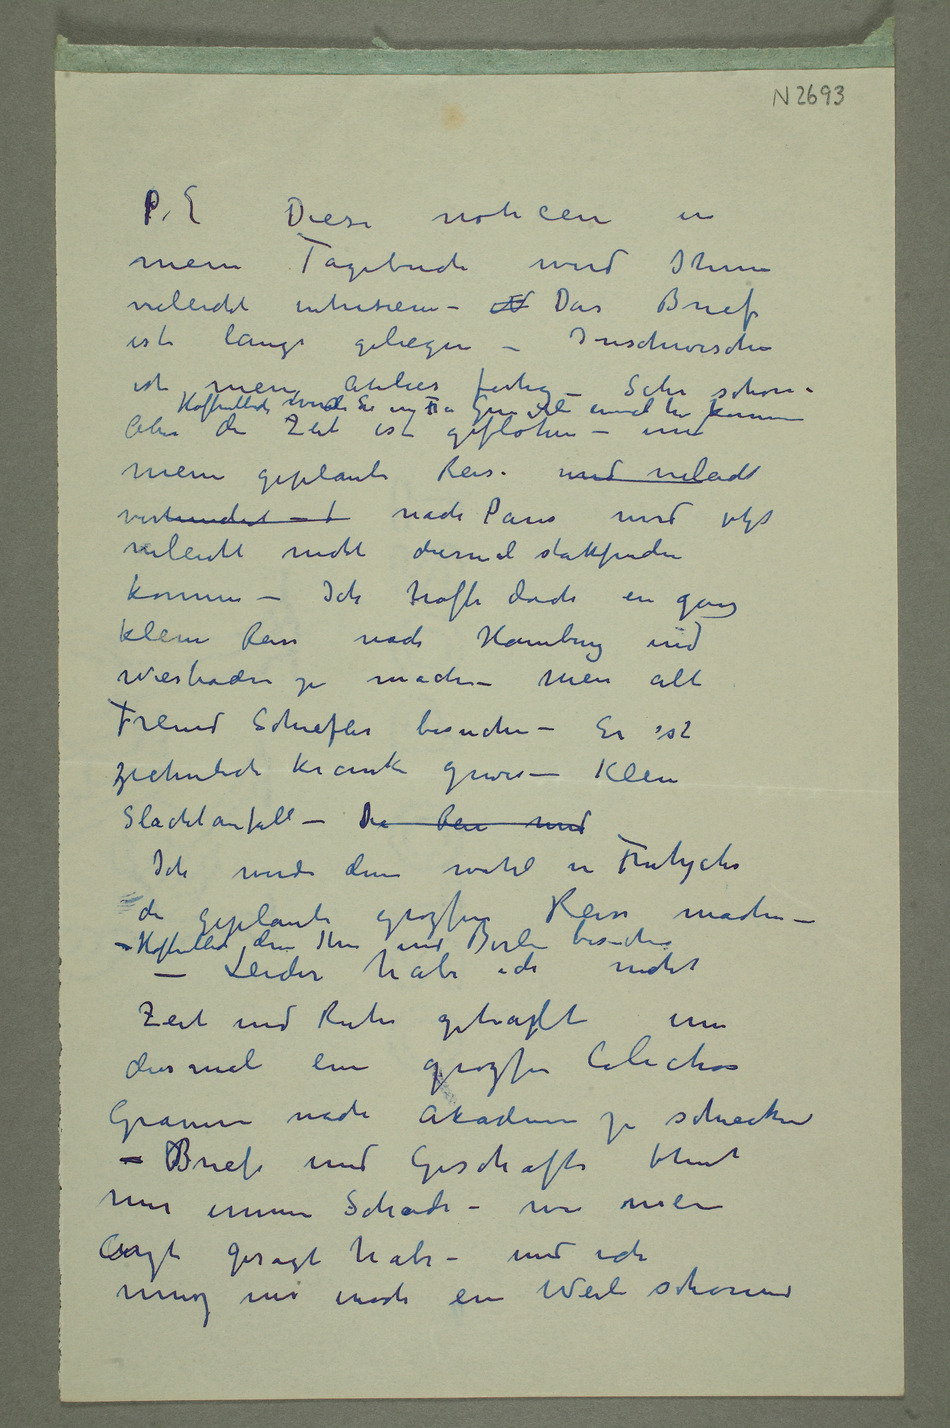 N 2693
P.S Diese noticen in
mein Tagebuch wird Ihnen
vieleicht intresiren – Das Brief
ist lange geliegen – Inschwischen
ist mein Atelier fertig – Sehr schön.
Hoffentlich werde Sie mit einmal hier kommen
Aber die Zeit ist geflohen – und
meine geplante Reise und vieleicht
nach Paris wird jetzt
vieleicht nicht diesmal stattfinden
können – Ich hoffe doch ein ganz
kleine Reise nach Hamburg und
Wiesbaden zu machen – mein alte
Freund Schiefler besuchen – Er ist
ziehmlich krank gewesen – Klein
Slachtanfall – Die Reise und
Ich werde dann wohl in Frühjahr
die geplante grozsen Reise machen –
– Hoffentlich dann Ihnen und Berlin besuchen
– Leider habe ich nicht
Zeit und Ruhe gehabt um
diesmal eine grozse Colection
Graviren nach Akademie zu schicken
– Briefe und Geschäfte thut
mir immer Schade – wie mein
Arzt gesagt habe – und ich
muss mir noch ein Weile schonen